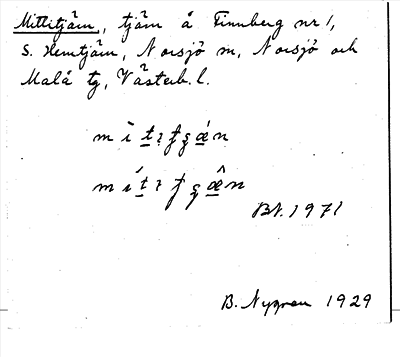 Mittitjärn, tjärn å Finnberg nr 1,
S. Hemtjärn, Norsjö sn, Norsjö och
Malå tg, Västerb. l.
BN. 1971
B. Nygren 1929